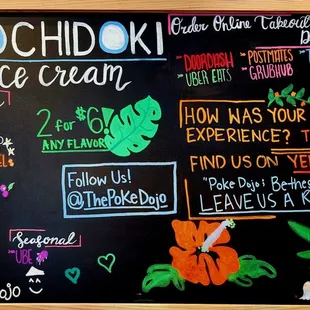 OCHIDOKI
ce cream
2 for $6!
ANY FLAVOR
Follow Us!
@ThePokeDojo
Seasonal
UBE
OJO
Order Online Takeou
D
DOORDASH
POSTMATES
UBER EATS
GRUBHUB
HOW WAS YOUR
EXPERIENCE? T
FIND US ON YE
"Poke Dojo: Bethe
LEAVE US A R